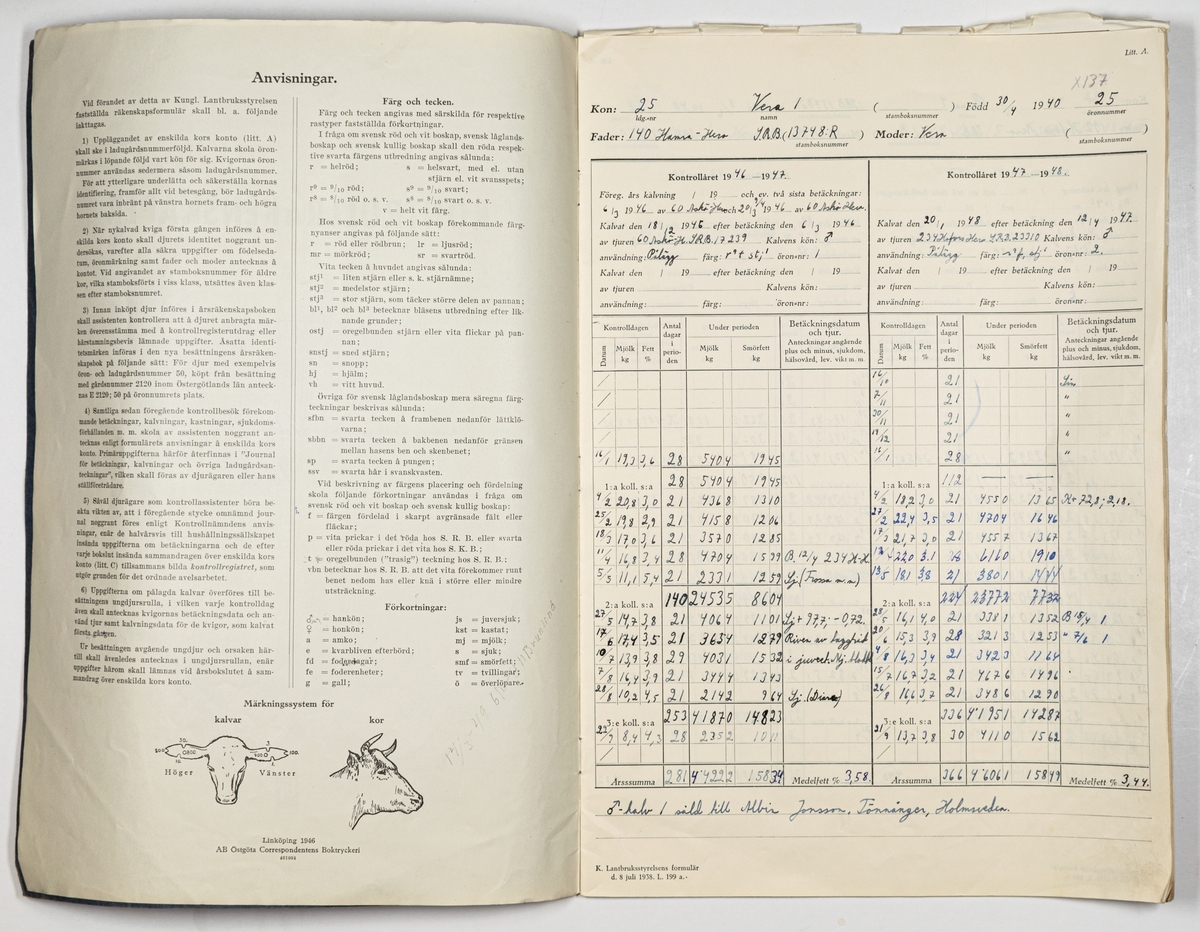 Anvisningar.
Vid förandet av detta av Kungl. Lantbruksstyrelsen
fastställda räkenskapsformulär skall bl. a. följande
iakttagas.
1) Uppläggandet av enskilda kors konto (litt. A)
skall ske i ladugårdsnummerföljd. Kalvarna skola öron-
märkas i löpande följd vart kön för sig. Kvigornas öron-
nummer användas sedermera såsom ladugårdsnummer.
För att ytterligare underlätta och säkerställa kornas
identifiering, framför allt vid betesgång, bör ladugårds-
numret vara inbränt på vänstra hornets fram- och högra
hornets baksida.
2) När nykalvad kviga första gången införes å en-
skilda kors konto skall djurets identitet noggrant un-
dersökas, varefter alla säkra uppgifter om födelseda-
tum, öronmärkning samt fader och moder antecknas å
kontot. Vid angivandet av stamboksnummer för äldre
kor, vilka stamboksförts i viss klass, utsättes även klas-
sen efter stamboksnumret.
3) Innan inköpt djur införes i årsräkenskapsboken
skall assistenten kontrollera att å djuret anbragta mär-
ken överensstämma med å kontrollregisterutdrag eller
härstamningsbevis lämnade uppgifter. Åsatta identi-
tetsmärken införas i den nya besättningens årsräken-
skapsbok på följande sätt: För djur med exempelvis
öron- och ladugårdsnummer 50, köpt från besättning
med gårdsnummer 2120 inom Östergötlands län anteck-
nas E 2120; 50 på öronnumrets plats.
4) Samtliga sedan föregående kontrollbesök förekom-
mande betäckningar, kalvningar, kastningar, sjukdoms-
förhållanden m. m. skola av assistenten noggrant an-
tecknas enligt formulärets anvisningar å enskilda kors
konto. Primäruppgifterna härför återfinnas i "Journal
för betäckningar, kalvningar och övriga ladugårdsan-
teckningar", vilken skall föras av djurägaren eller hans
ställföreträdare.
5) Såväl djurägare som kontrollassistenter böra be-
akta vikten av, att i föregående stycke omnämnd jour-
nal noggrant föres enligt Kontrollnämndens anvis-
ningar, enär de halvårsvis till hushållningssällskapet
insända uppgifterna om betäckningarna och de efter
varje bokslut insända sammandragen över enskilda kors
konto (litt. C) tillsammans bilda kontrollregistret, som
utgör grunden för det ordnade avelsarbetet.
6) Uppgifterna om pålagda kalvar överföras till be-
sättningens ungdjursrulla, i vilken varje kontrolldag
även skall antecknas kvigornas betäckningsdata och an-
vänd tjur samt kalvningsdata för de kvigor, som kalvat
första gången.
Ur besättningen avgående ungdjur och orsaken här-
till skall ävenledes antecknas i ungdjursrullan, enär
uppgifter härom skall lämnas vid årsbokslutet å sam-
mandrag över enskilda kors konto.
Färg och tecken.
Färg och tecken angivas med särskilda för respektive
rastyper fastställda förkortningar.
I fråga om svensk röd och vit boskap, svensk låglands-
boskap och svensk kullig boskap skall den röda respek-
tive svarta färgens utbredning angivas sålunda:
r = helröd; s = helsvart, med el. utan
stjärn el. vit svansspets;
r⁹ = ⁹/₁₀ röd; s⁹ = ⁹/₁₀ svart;
r⁸ = ⁸/₁₀ röd o. s. v. s⁸ = ⁸/₁₀ svart o. s. v.
v = helt vit färg.
Hos svensk röd och vit boskap förekommande färg-
nyanser angivas på följande sätt:
r = röd eller rödbrun; lr = ljusröd;
mr = mörkröd; sr = svartröd.
Vita tecken å huvudet angivas sålunda:
stj¹ = liten stjärn eller s. k. stjärnämne;
stj² = medelstor stjärn;
stj³ = stor stjärn, som täcker större delen av pannan;
bl¹, bl² och bl³ betecknar bläsens utbredning efter lik-
nande grunder;
ostj = oregelbunden stjärn eller vita flickar på pan-
nan;
snstj = sned stjärn;
sn = snopp;
hj = hjälm;
vh = vitt huvud.
Övriga för svensk låglandsboskap mera säregna färg-
teckningar beskrivas sålunda:
sfbn = svarta tecken å frambenen nedanför lättklö-
varna;
sbbn = svarta tecken å bakbenen nedanför gränsen
mellan hasens ben och skenbenet;
sp = svarta tecken å pungen;
ssv = svarta hår i svanskvasten.
Vid beskrivning av färgens placering och fördelning
skola följande förkortningar användas i fråga om
svensk röd och vit boskap och svensk kullig boskap:
f = färgen fördelad i skarpt avgränsade fält eller
fläckar;
p = vita prickar i det röda hos S. R. B. eller svarta
eller röda prickar i det vita hos S. K. B.;
t = oregelbunden ("trasig") teckning hos S. R. B.;
vbn betecknar hos S. R. B. att det vita förekommer runt
benet nedom has eller knä i större eller mindre
utsträckning.
Förkortningar:
♂ = hankön; js = juversjuk;
♀ = honkön; kst = kastat;
a = amko; mj = mjölk;
e = kvarbliven efterbörd; s = sjuk;
fd = foderdagar; smf = smörfett;
fe = foderenheter; tv = tvillingar;
g = gall; ö = överlöpare.
Märkningssystem för
kalvar kor
Höger Vänster
Linköping 1946
AB Östgöta Correspondentens Boktryckeri
Litt. A.
X137
Kon: 25 Vera 1 ( ) Född 30/4 1940 25
ldg.-nr namn stamboksnummer öronnummer
Fader: 140 Hamra-Hero S.R.B. (13748.R Moder: Vera ( )
stamboksnummer stamboksnummer
Kontrollåret 1946—1947.
Föreg. års kalvning / 19 och ev. två sista betäckningar:
6/3 1946 av 60 Askö Hero och 20/3 1946 av 60 Askö Hero.
Kalvat den 18/12 1946 efter betäckning den 6/3 1946
av tjuren 60 Askö H. S.R.B. 17239 Kalvens kön: ♂
användning: Pålägg färg: öron-nr: 1
Kalvat den / 19 efter betäckning den / 19
av tjuren Kalvens kön:
användning: färg: öron-nr:
Kontrollåret 1947—1948.
Kalvat den 20/1 1948 efter betäckning den 12/4 1947.
av tjuren 234 Hofors Hero S.R.B. 22310 Kalvens kön: ♂
användning: Pålägg färg: öron-nr: 2.
Kalvat den / 19 efter betäckning den / 19
av tjuren Kalvens kön:
användning: färg: öron-nr:
Kontrolldagen Antal dagar i perio-den Under perioden Betäckningsdatum och tjur.
Datum Mjölk kg Fett % Mjölk kg Smörfett kg Anteckningar angående plus och minus, sjukdom, hälsovård, lev. vikt m. m.
16/1 19,3 3,6 28 5404 1945
1:a koll. s:a 28 5404 1945
4/2 20,8 3,0 21 4368 1310
25/2 19,8 2,9 21 4158 1206
18/3 17,0 3,6 21 3570 1285
11/4 16,8 3,4 28 4704 1599 B. 12/4 234 H-H.
5/5 11,1 5,4 21 2331 1259 Sj. (Trossa m.m)
2:a koll. s:a 140 24535 8604
27/5 14,7 3,8 21 4064 1101 Sj + 97,7, - 0,72.
17/6 17,4 3,5 21 3654 1279 Riven av taggtråd
10/7 13,9 3,8 29 4031 1532 i juvret.
7/8 16,4 3,9 21 3444 1343
28/8 10,2 4,5 21 2142 964 Sj. (Diarré)
3:e koll. s:a 253 41870 14823
23/9 8,4 4,3 28 2352 1011
Årssumma 281 44222 15834 Medelfett % 3,58.
Kontrolldagen Antal dagar i perio-den Under perioden Betäckningsdatum och tjur.
Datum Mjölk kg Fett % Mjölk kg Smörfett kg Anteckningar angående plus och minus, sjukdom, hälsovård, lev. vikt m. m.
16/10 21 Sin
7/11 21 "
30/11 21 "
19/12 21 "
16/1 28 "
1:a koll. s:a 112 — —
4/2 18,2 3,0 21 4550 1365 K+ 72,8; 2,18.
27/2 22,4 3,5 21 4704 1646
17/3 21,7 3,0 21 4557 1367
22,0 3,1 28 6160 1910
13/5 18,1 3,8 21 3801 1444
2:a koll. s:a 224 23772 7732
28/5 16,1 4,0 21 3381 1352 B 15/4 1
20/6 15,3 3,9 28 3213 1253 = 7/6 1
4/8 16,3 3,4 21 3423 1164
15/7 16,7 3,2 21 4676 1496
26/8 16,6 3,7 21 3486 1290
3:e koll. s:a 336 41951 14287
21/9 13,7 3,8 30 4110 1562
Årssumma 366 46061 15849 Medelfett % 3,44.
♂-kalv 1 såld till Albin Jonsson, Tönnånger, Holmsveden.
K. Lantbruksstyrelsens formulär
d. 8 juli 1938. L. 199 a.-